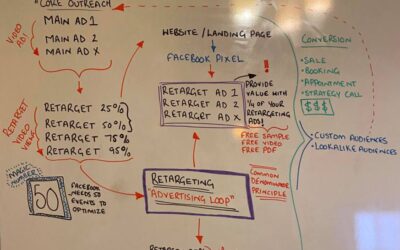 "CORE OUTREACH"
MAIN AD 1
MAIN AD 2
MAIN AD X
VIDEO AD!
RETARGET 25%
RETARGET 50%
RETARGET 75%
RETARGET 95%
RETARGET
VIDEO
VIEWS
MAGIC NUMBER
50
FACEBOOK
NEEDS 50
EVENTS TO
OPTIMIZE
WEBSITE / LANDING PAGE
FACEBOOK PIXEL
RETARGET AD 1
RETARGET AD 2
RETARGET AD X
!
PROVIDE
VALUE WITH
1/4 OF YOUR
RETARGETING
ADS!
FREE SAMPLE
FREE VIDEO
FREE PDF
RETARGETING
"ADVERTISING LOOP"
COMMON
DENOMINATOR
PRINCIPLE
CONVERSION
- SALE
- BOOKING
- APPOINTMENT
- STRATEGY CALL
$$$
• CUSTOM AUDIENCES
• LOOKALIKE AUDIENCES